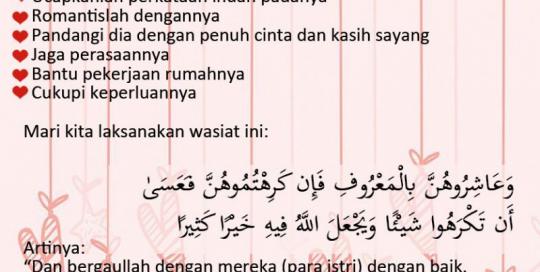 Ucapkanlah perkataan indah padanya
Romantislah dengannya
Pandangi dia dengan penuh cinta dan kasih sayang
Jaga perasaannya
Bantu pekerjaan rumahnya
Cukupi keperluannya
Mari kita laksanakan wasiat ini:
وَعَاشِرُوهُنَّ بِالْمَعْرُوفِ فَإِن كَرِهْتُمُوهُنَّ فَعَسَىٰ
أَن تَكْرَهُوا شَيْئًا وَيَجْعَلَ اللَّهُ فِيهِ خَيْرًا كَثِيرًا
Artinya:
“Dan bergaullah dengan mereka (para istri) dengan baik.